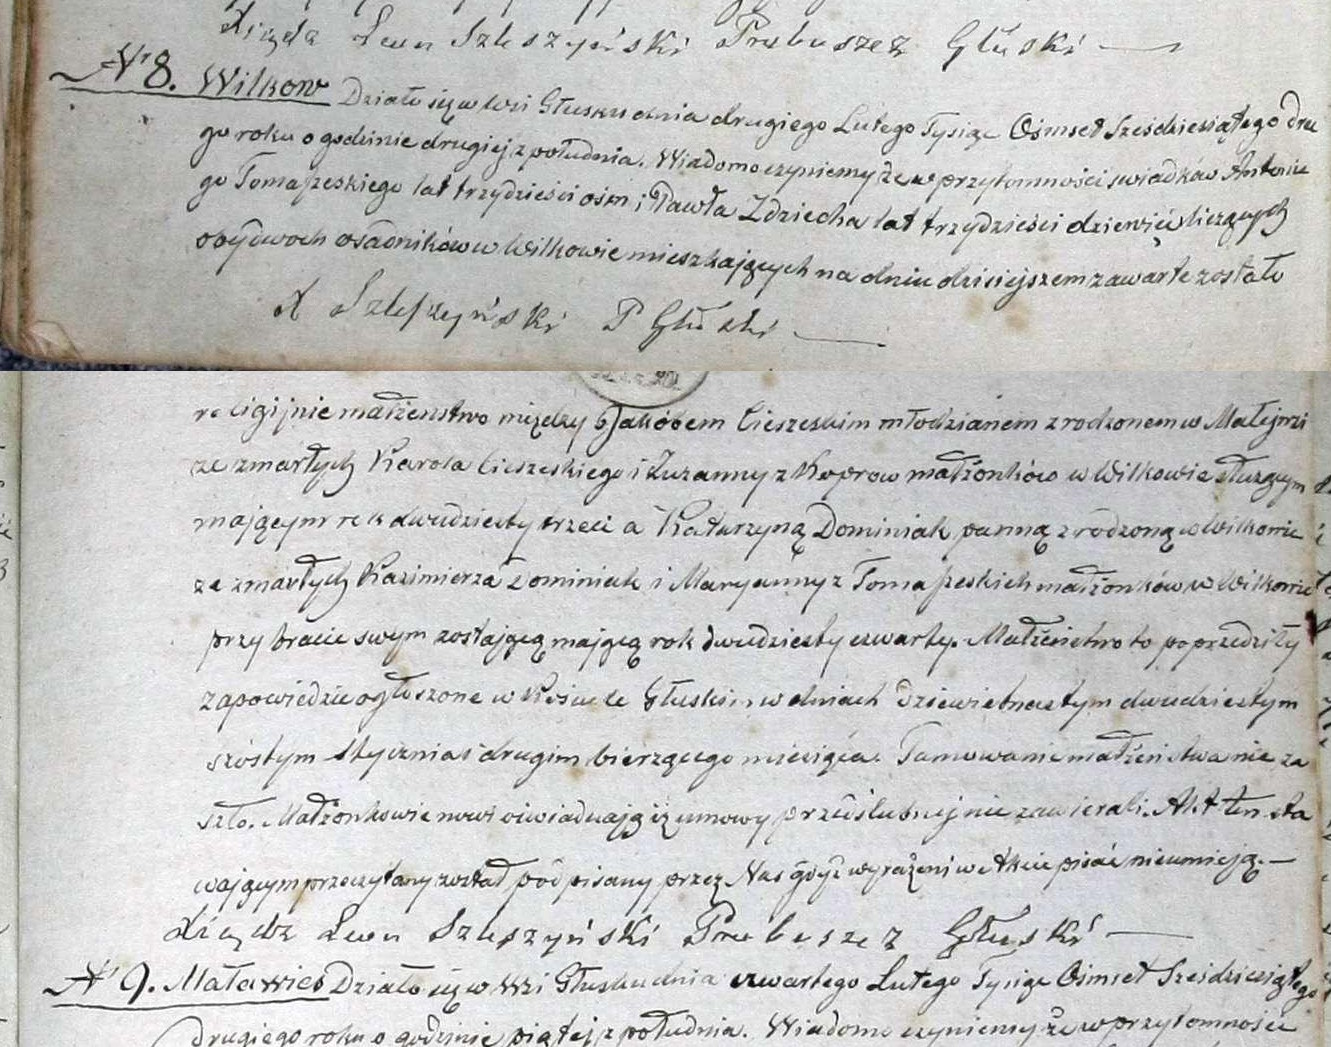 Xiądz Leon Szleszyński Proboszcz Głuski
N 8. Wilkow Działo się w wsi Głusku dnia drugiego Lutego Tysiąc Ośmset Sześdziesiątego dru
go roku o godzinie drugiej z południa. Wiadomo czyniemy że w przytomności swiadków Antonie
go Tomaszeskiego lat trzydzieści ośm i Pawła Zdziecha lat trzydzieści dziewięć liczących
obydwoch osadników w Wilkowie mieszkających na dniu dzisiejszem zawarte zostało
X Szleszyński P Głuski
religijnie małżenstwo między Jakóbem Cieszeskim młodzianem zrodzonem w Małejwsi
ze zmarłych Karola Cieszeskiego i Zuzanny z Koprow małżonków w Wilkowie służącym
mającym rok dwudziesty trzeci a Katarzyną Dominiak panną zrodzoną w Wilkowie
ze zmarłych Kazimierza Dominiak i Maryanny z Tomaszeskich małżonków w Wilkowie
przy bracie swym zostającą mającą rok dwudziesty czwarty. Małżeństwo to poprzedziły
zapowiedzie ogłoszone w Kościele Głuskim w dniach dziewietnastym dwudziestym
szóstym Stycznia i drugim bierzącego miesiąca. Tamowanie małżeństwa nie za
szło. Małżonkowie nowi oświadczają iż umowy przedślubnej nie zawierali. Akt ten sta
wającym przeczytany został podpisany przez Nas gdyż wyrażeni w Akcie pisać nieumieją.
Xiądz Leon Szleszyński Proboszcz Głuski
N 9. Matawies Działo się w Wsi Głusku dnia czwartego Lutego Tysiąc Ośmset Sześdziesiątego
drugiego roku o godzinie piątej z południa. Wiadomo czyniemy że w przytomności